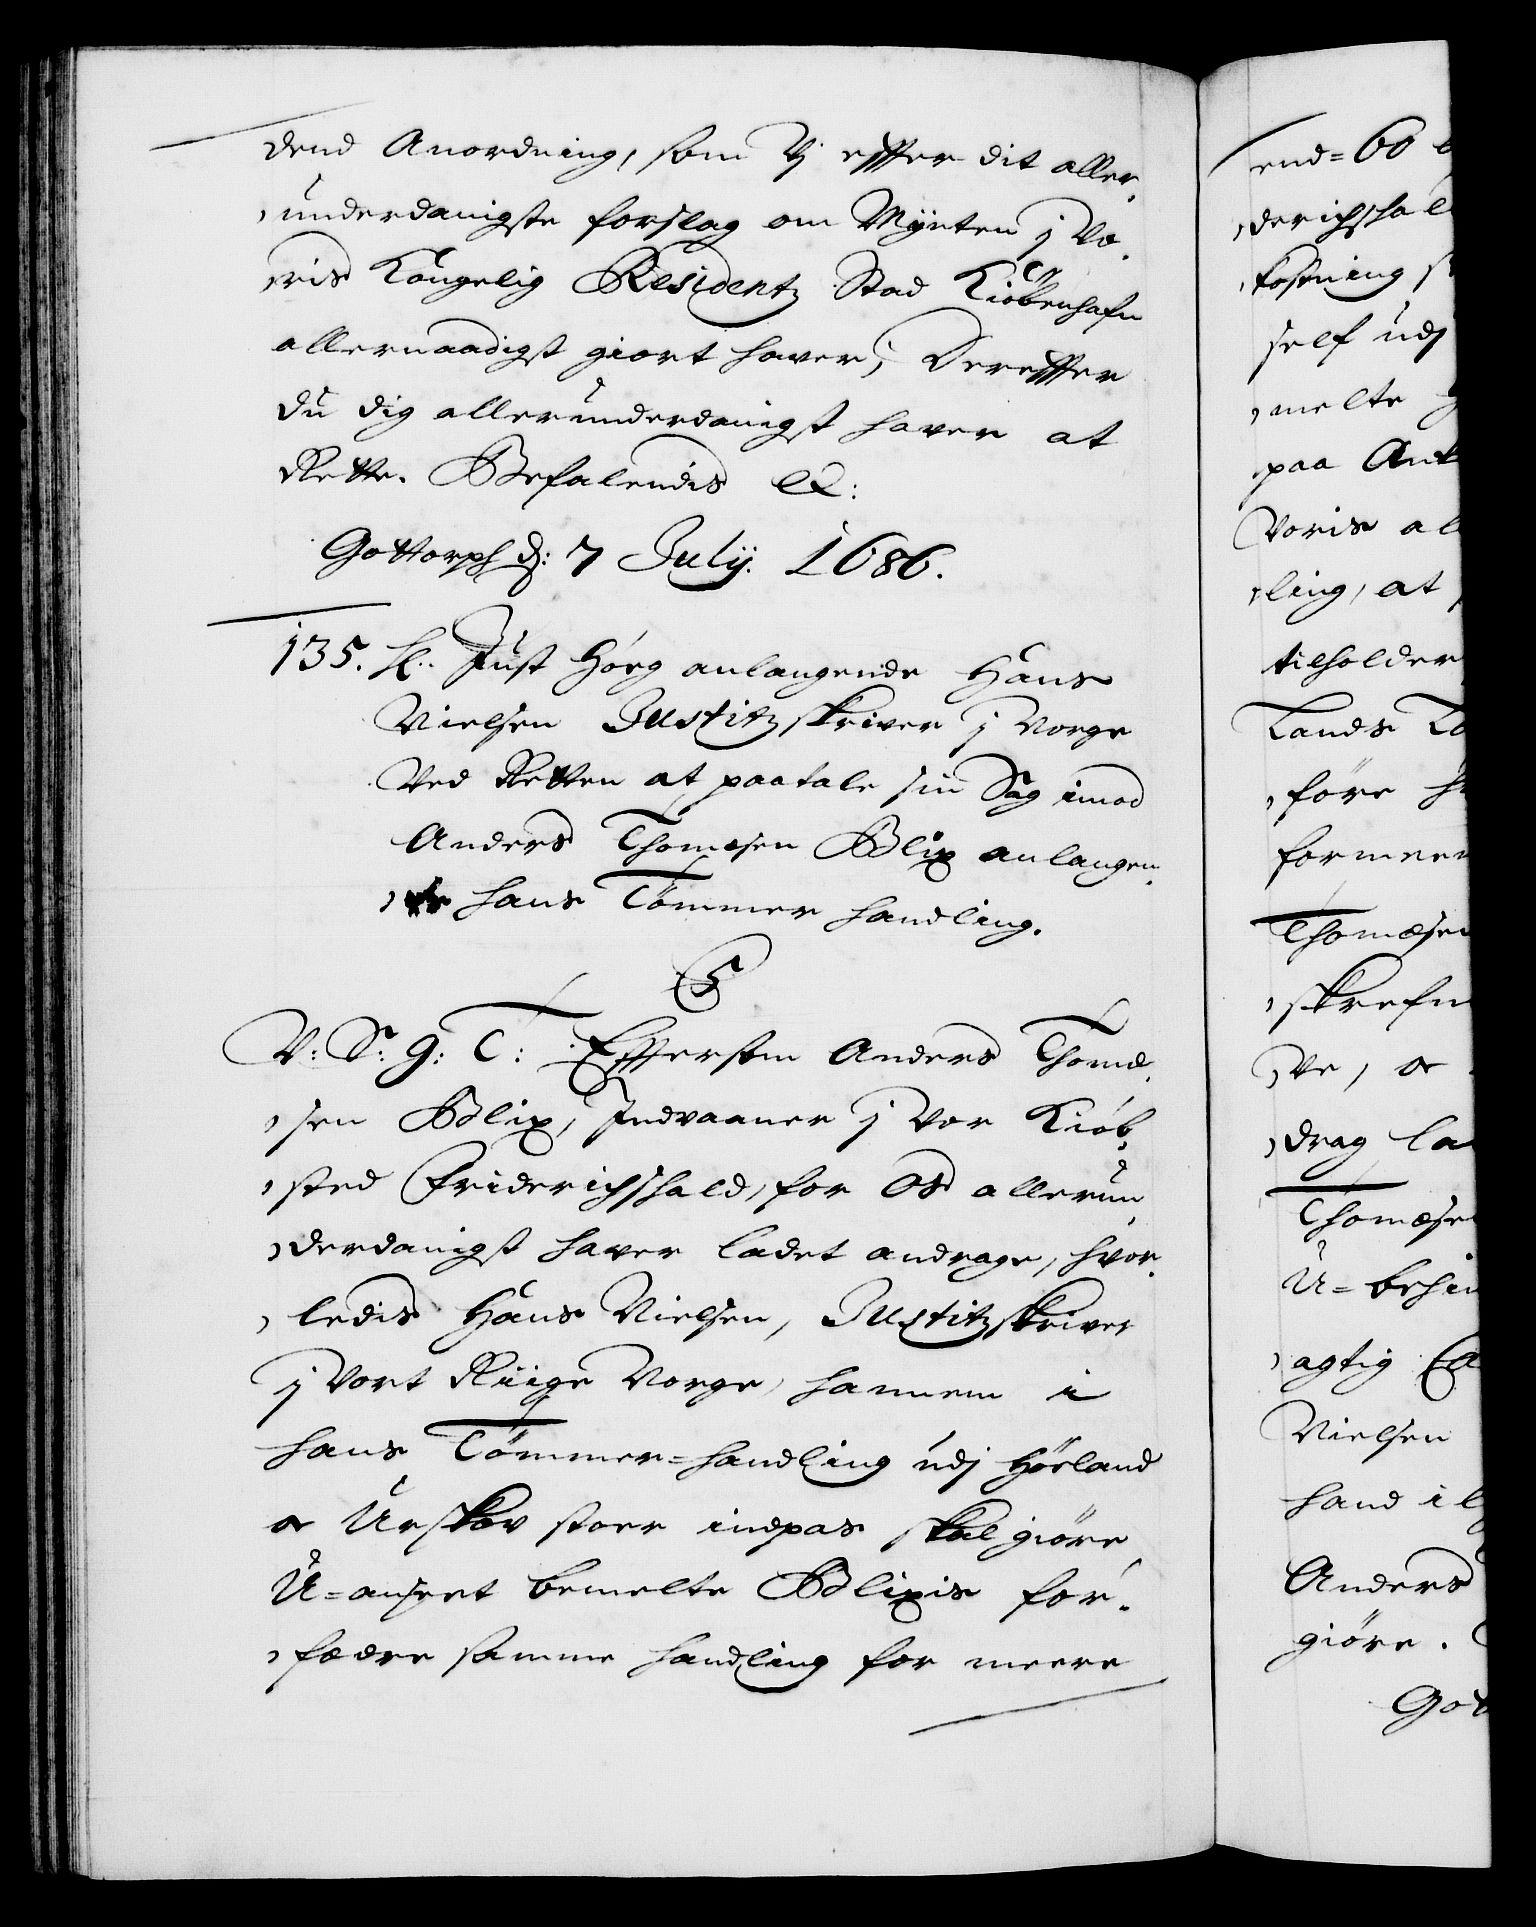 dend Anordning, som Vj effter dit aller¬
underdanigste forslag om Mÿnten j Vo¬
ris Kongelig Residentz Stad Kiöbenhafn
allernaadigst giort hafver, Dereffter
du dig allerunderdanigst hafver at
Rette. Befalendis etc:
Gottorph d: 7 Julÿ. 1686.
135. H. Just Høeg anlangende Hans
Nielsen Justitzskriver j Norge
Ved Retten at paatale sin Sag imod
Anders Thomæsen Blix anlangen¬
de hans Tömmer handling.
C5
V: S: G: T: Effterson Anders Thomæ¬
sen Blix, Indvaaner j vor Kiöb¬
sted Friderichshald, for Os allerun¬
derdanigst hafver ladet andrage, hvor¬
ledis Hans Nielsen, Justitzskriver
j Vort Riige Norge, hannem i
hans Tömmer=handling udj Höeland
oc Urskov stoer indpas skal giöre
U=anseet bemelte Blixis for¬
fædre samme handling for meere
end=60
derichshal
kofning
self udj
melte
paa
Voris al
ling, at
tilholder
Lands
före
formeen
Thomæsen
skrefn
Ve, oc
drag la
Thomæse
U=behin
agtig
Nielsen
hand i
Anders
giöre.
Got